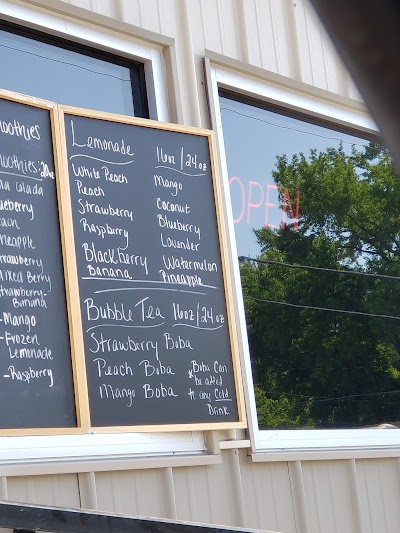 moothies
moothies: 24oz
Colada
ueberry
each
ineapple
trawberry
Mixed Berry
Strawberry-
Banana
-Mango
-Frozen
Lemonade
-Raspberry
Lemonade 16oz/24oz
White Peach Mango
Peach Coconut
Strawberry Blueberry
Raspburry Lavender
Blackberry Watermelon
Banana Pineapple
Bubble Tea 16oz/24oz
Strawberry Boba
Peach Boba
Mango Boba
*Boba Can
be added
to any Cold
Drink
OPEN